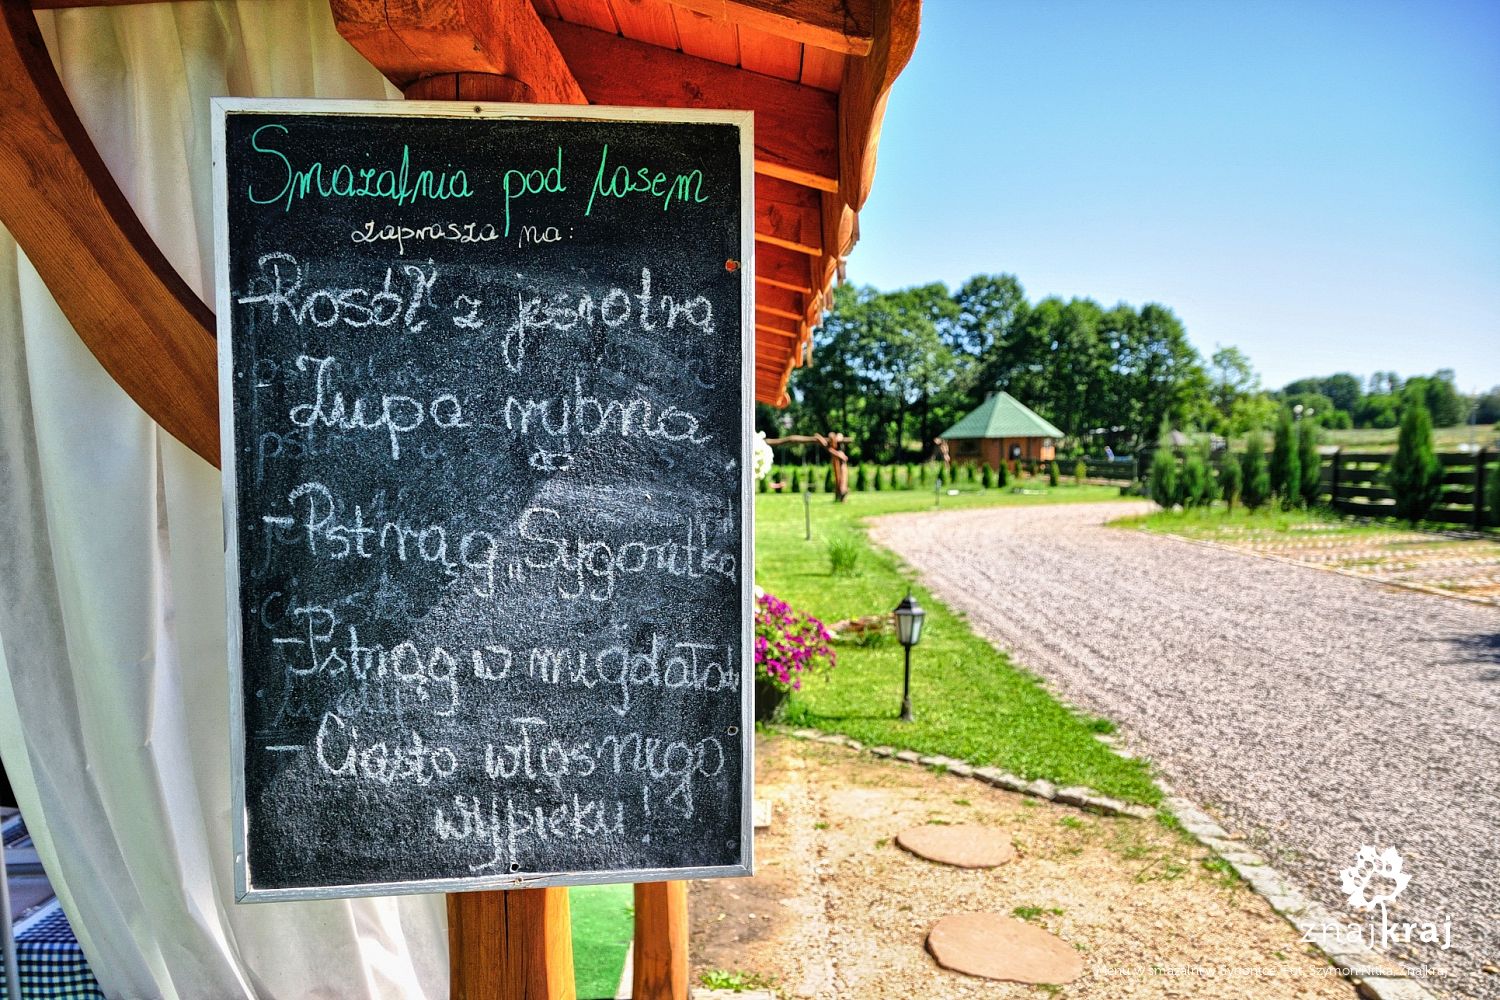 Smażalnia pod lasem
zaprasza na:
- Rosół z jesiotra
Zupa rybna
- Pstrąg „Sygontka
- Pstrąg w migdałów
- Ciasto własnego
wypieku!
znajkraj
Menu w smażalni w Sygontce. Fot. Szymon Nitka, Znajkraj